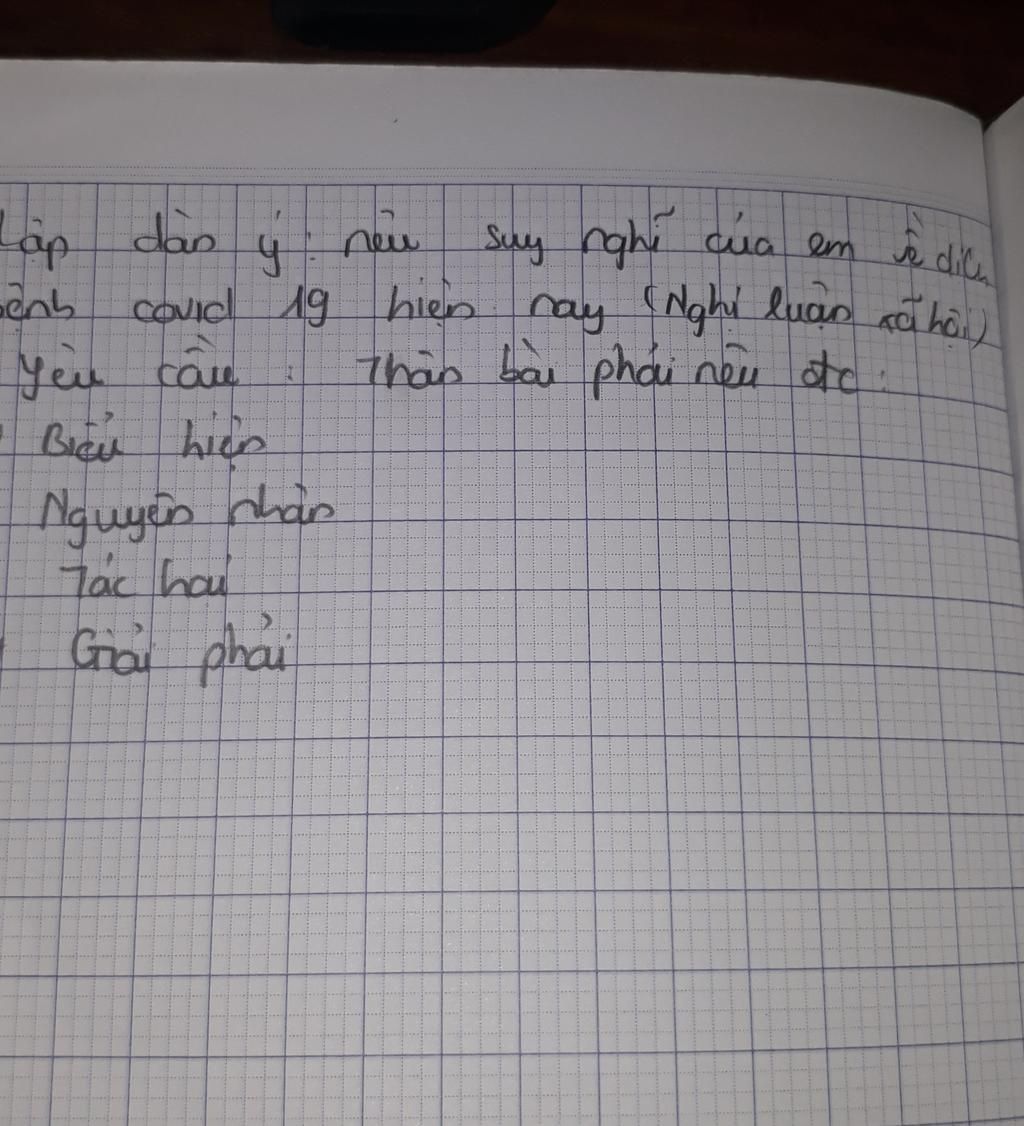 Lập dàn ý: nêu suy nghĩ của em về dịch
bệnh covid 19 hiện nay (Nghị luận xã hội)
Yêu cầu : Thân bài phải nêu đc :
Biểu hiện
Nguyên nhân
Tác hại
Giải phải